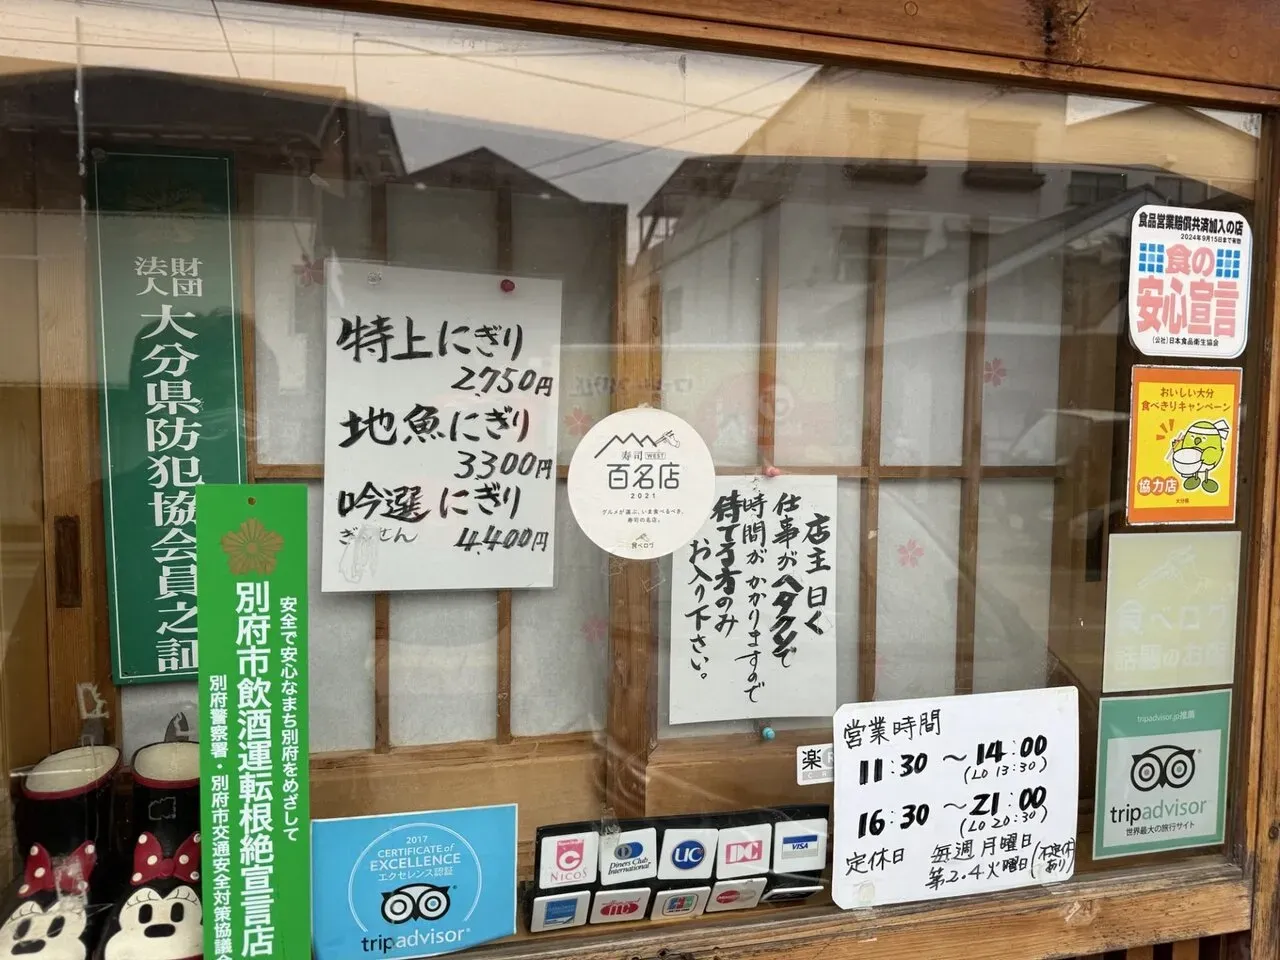 財団
法人
大分県防犯協会員之証
安全で安心なまち別府をめざして
別府市飲酒運転根絶宣言店
別府警察署・別府市交通安全対策協議会
特上にぎり
2,750円
地魚にぎり
3300円
吟選にぎり
ぎんせん
4,400円
寿司 WEST
百名店
2021
グルメが選ぶ、いま食べるべき、
寿司の名店。
食べログ
店主曰く
仕事がヘタクソで
時間がかかりますので
待てる方のみ
お入り下さい。
営業時間
11:30 〜 14:00
(LO 13:30)
16:30 〜 21:00
(LO 20:30)
定休日 毎週月曜日
第2.4火曜日(不定休あり)
食品営業賠償共済加入の店
2024年9月15日まで有効
食の
安心宣言
(公社)日本食品衛生協会
おいしい大分
食べきりキャンペーン
協力店
大分県
食べログ
話題のお店
tripadvisor.jp推薦
tripadvisor
世界最大の旅行サイト
2017
CERTIFICATE of
EXCELLENCE
エクセレンス認証
tripadvisor
NICOS
Diners Club
International
UC
DC
VISA
JCB
楽